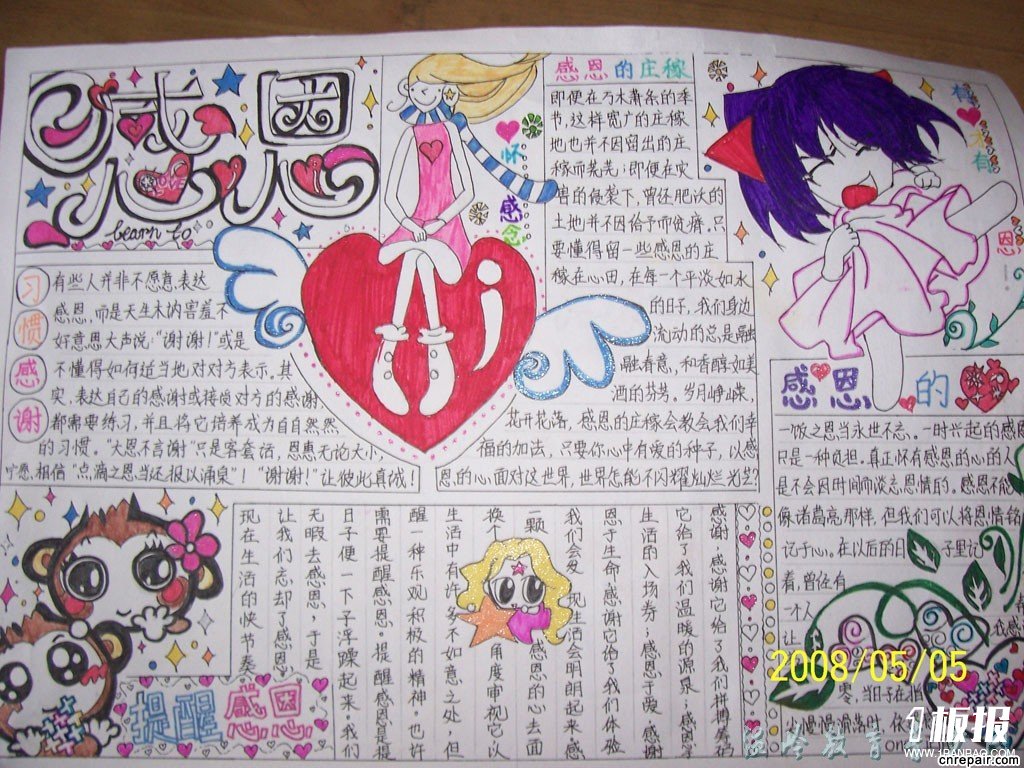 感恩
learn to
习惯感谢
有些人并非不愿意表达
感恩,而是天生木讷害羞不
好意思大声说:“谢谢!”或是
不懂得如何适当地对对方表示。其
实,表达自己的感谢或接受对方的感谢,
都需要练习,并且将它培养成为自自然然
的习惯。“大恩不言谢”只是客套话,恩惠无论大小,
宁愿相信“点滴之恩当还报以涌泉”!“谢谢!”让彼此真诚!
怀感恩
感恩的庄稼
即便在万木萧条的季
节,这样宽广的庄稼
地也并不因留出的庄
稼而荒芜;即便在灾
害的侵袭下,曾还肥沃的
土地并不因给予而贫瘠。只
要懂得留一些感恩的庄
稼在心田,在每一个平淡如水
的日子,我们身边
流动的总是融
融春意,和香醇如美
酒的芬芳。岁月峥嵘,
花开花落,感恩的庄稼会教会我们幸
福的加法,只要你心中有爱的种子,以感
恩的心面对这世界,世界怎能不闪耀灿烂光芒?
感恩的
一饭之恩当永世不忘。一时兴起的感恩
只是一种负担。真正怀有感恩的心的人
是不会因时间而淡忘恩情的。感恩不能
像诸葛亮那样,但我们可以将恩情铭
记于心。在以后的日子里记
着,曾经有
一个人
让
我感
零,当日子在指
尖慢慢滑落时,依
感谢,感谢它给了我们拼搏
它给了我们温暖的源泉
生活的入场券;感恩于爱,感谢
恩于生命,感谢它给了我们体验
我们会发现生活会明朗起来。感
一颗感恩的心去面
换个角度审视它,以
生活中有许多不如意之处,但
醒一种乐观积极的精神。也许
需要提醒感恩。提醒感恩是提
日子便一下子浮躁起来。我们
无暇去感恩,于是
让我们忘却了感恩
现在生活的快节奏
提醒感恩
2008/05/05
温岭教育
板报
www.1banbao.com
cnrepair.com